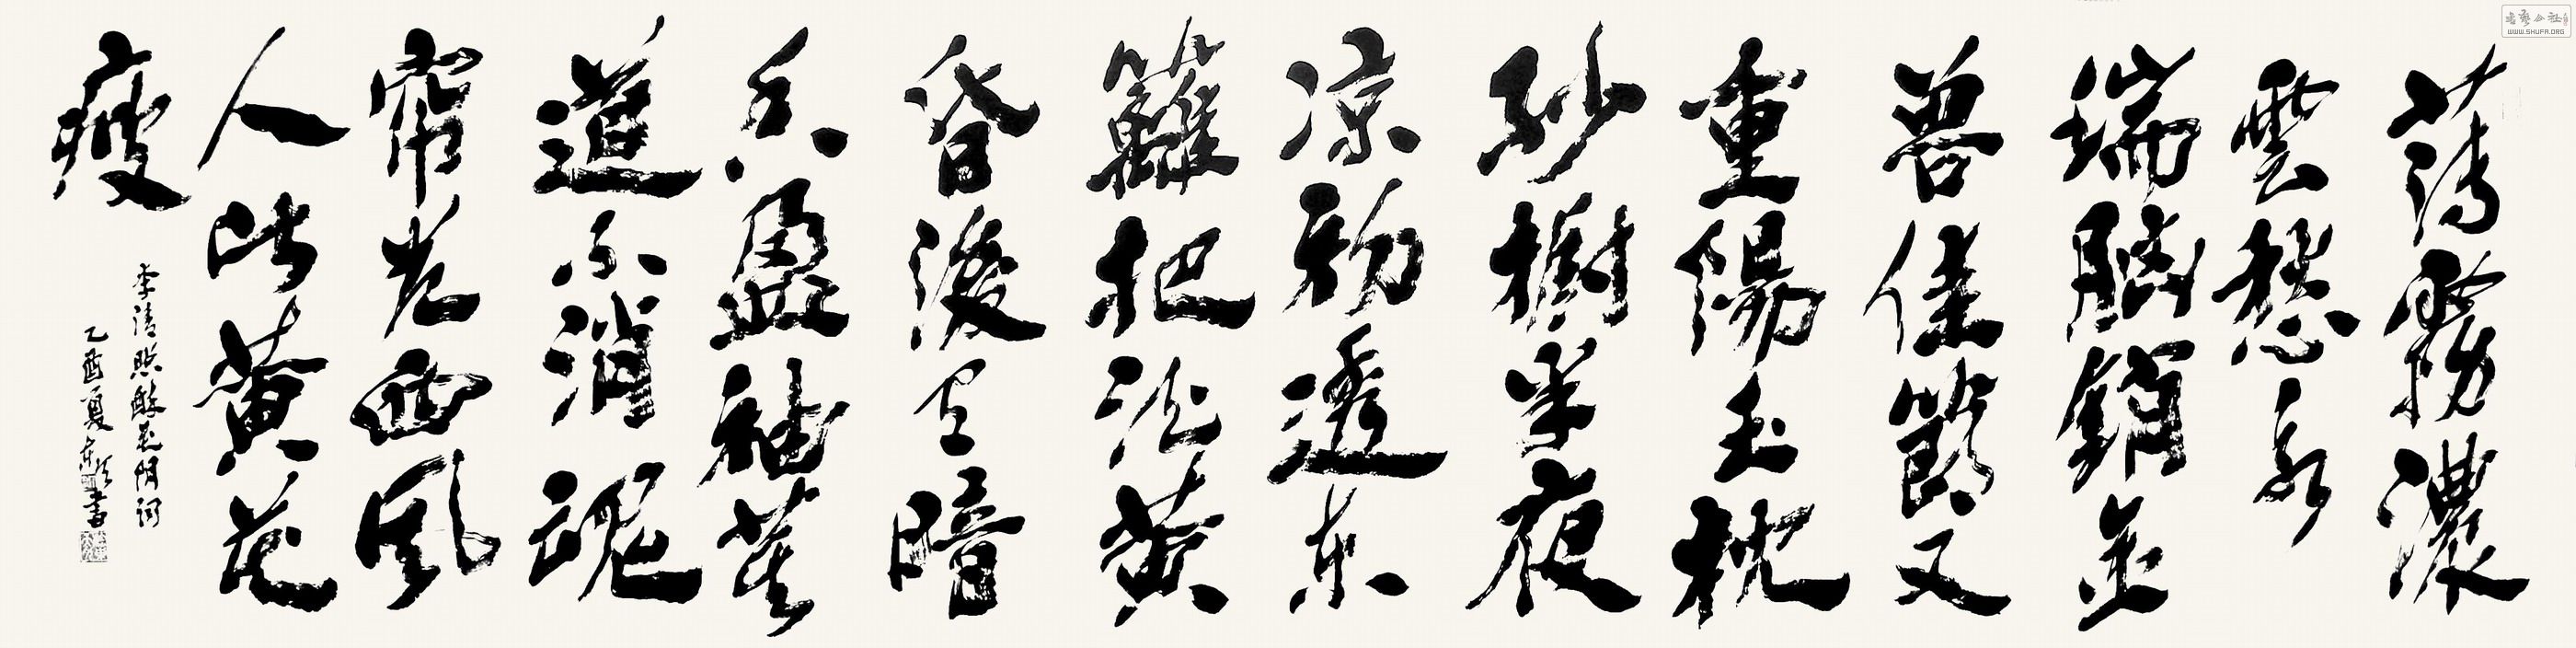 薄霧濃
雲愁永
瑞腦銷金
兽佳節又
重陽玉枕
紗橱半夜
凉初透東
籬把酒黄
昏後有暗
香盈袖莫
道不消魂
帘卷西風
人比黄花
瘦
李清照醉花阴词
乙酉夏書
WWW.SHUFA.ORG